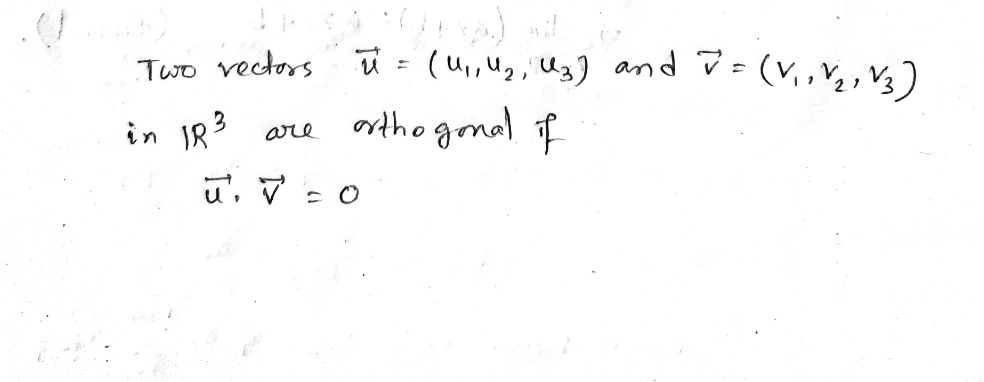 Two vectors u⃗ = (u₁, u₂, u₃) and v⃗ = (v₁, v₂, v₃)
in ℝ³ are orthogonal if
u⃗ . v⃗ = 0